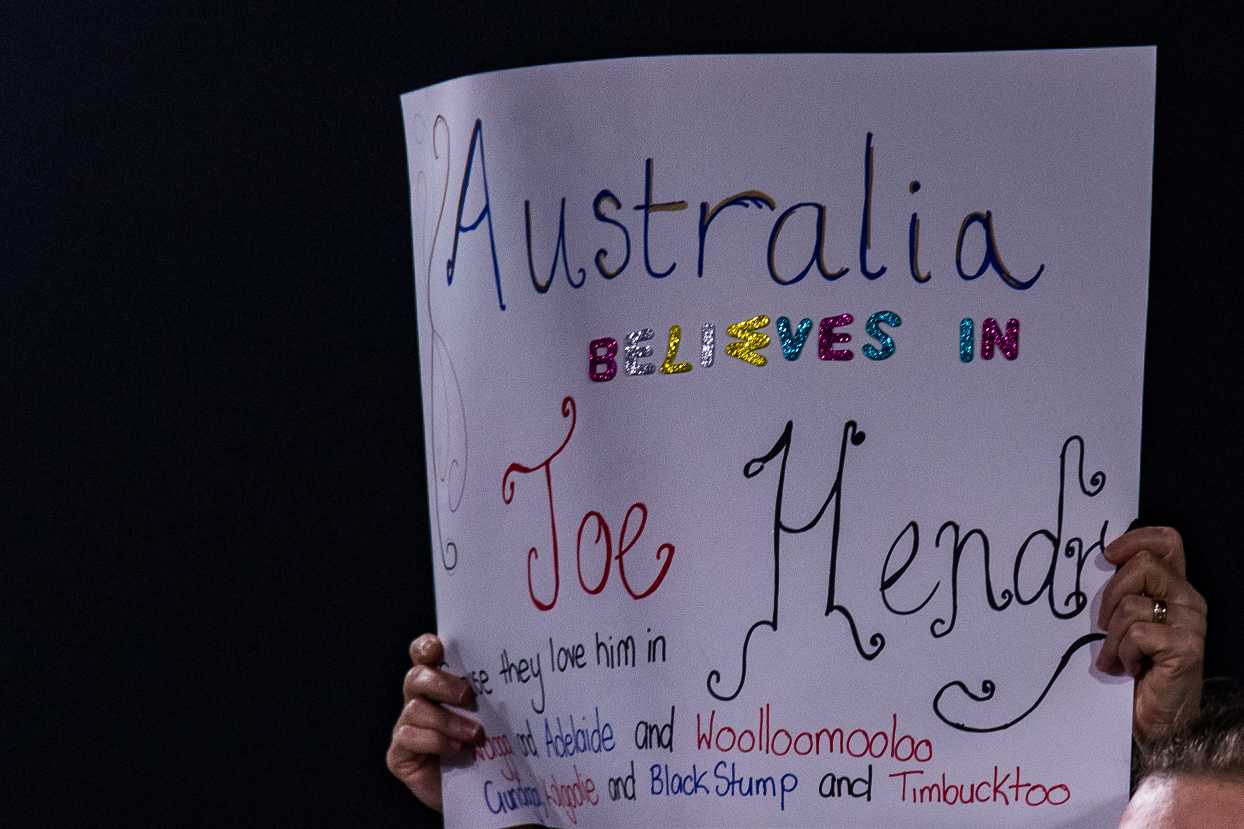 Australia
BELIEVES IN
Joe Hendr
se they love him in
and Adelaide and Woolloomooloo
Gundagai Kalgoolie and Black Stump and Timbucktoo